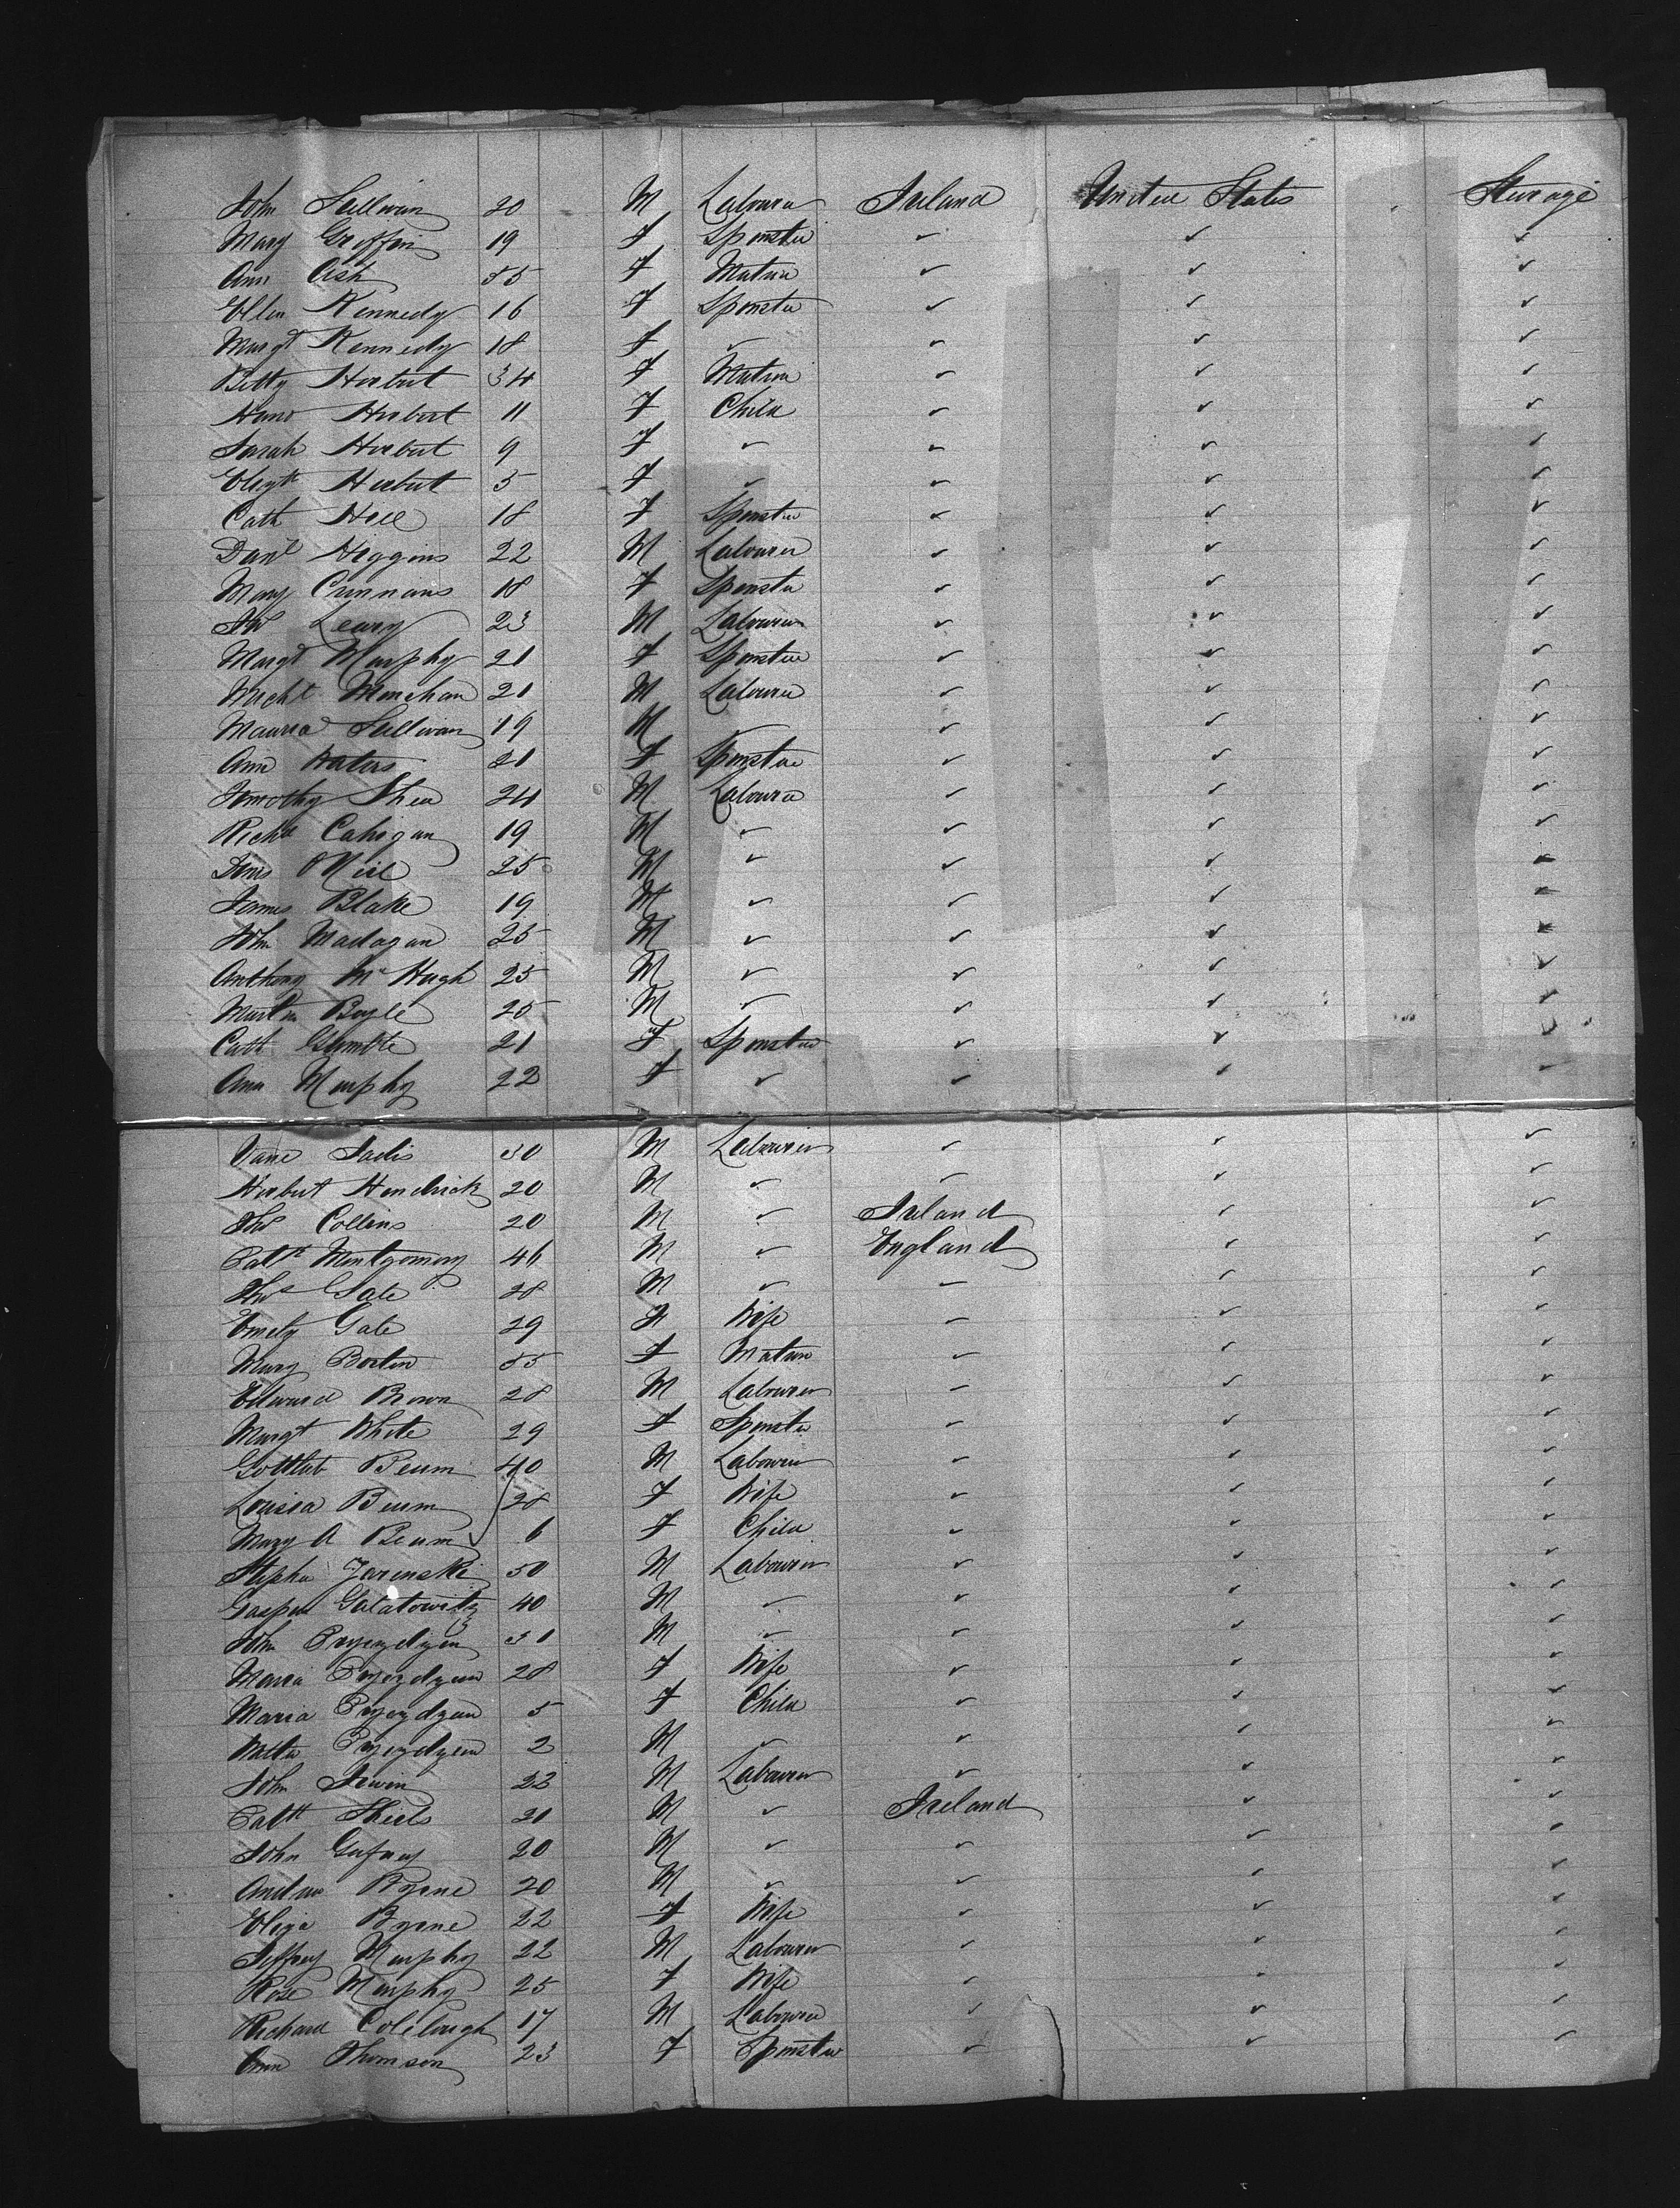 John Sullivan 20 M Labourer Ireland United States Steerage
Mary Griffin 19 F Spinster ✓ ✓ ✓
Ann Cish 55 F Matron ✓ ✓ ✓
Ellen Kennedy 16 F Spinster ✓ ✓ ✓
Margt Kennedy 18 F ✓ ✓ ✓ ✓
Betty Herbert 34 F Matron ✓ ✓ ✓
Hano Herbert 11 F Child ✓ ✓ ✓
Sarah Herbert 9 F ✓ ✓ ✓ ✓
Elizth Herbert 5 F ✓ ✓ ✓ ✓
Cath 18 F Spinster ✓ ✓ ✓
Danl Higgins 22 M Labourer ✓ ✓ ✓
Mary Crinnans 18 F Spinster ✓ ✓ ✓
Leary 23 M Labourer ✓ ✓ ✓
Margt Murphy 21 F Spinster ✓ ✓ ✓
Michl Minehan 21 M Labourer ✓ ✓ ✓
Maurice Sullivan 19 M ✓ ✓ ✓ ✓
Ann Waters 21 F Spinster ✓ ✓ ✓
Timothy Shea 24 M Labourer ✓ ✓ ✓
Richd Cahigan 19 M ✓ ✓ ✓ ✓
Denis ONeil 25 M ✓ ✓ ✓ ✓
James Blake 19 M ✓ ✓ ✓ ✓
John Madagan 25 M ✓ ✓ ✓ ✓
Anthony McHugh 25 M ✓ ✓ ✓ ✓
Martin Boyle 25 M ✓ ✓ ✓ ✓
Cath Gumble 21 F Spinster ✓ ✓ ✓
Ann Murphy 22 F ✓ ✓ ✓ ✓
30 M Labourer ✓ ✓ ✓
Herbert Hendrick 20 M ✓ ✓ ✓ ✓
Thos Collins 20 M ✓ Ireland ✓ ✓
Patk Montgomery 46 M ✓ England ✓ ✓
Thos Gale 28 M ✓ ✓ ✓ ✓
Emely Gale 29 F Wife ✓ ✓ ✓
Mary Borten 55 F Matron ✓ ✓ ✓
Edward Brown 28 M Labourer ✓ ✓ ✓
Margt White 29 F Spinster ✓ ✓ ✓
Gottlib Beum 40 M Labourer ✓ ✓ ✓
Louisa Beum 28 F Wife ✓ ✓ ✓
Mary A Beum 6 F Child ✓ ✓ ✓
Stephen Jarenski 50 M Labourer ✓ ✓ ✓
Gasper Galatowitz 40 M ✓ ✓ ✓ ✓
John 31 M ✓ ✓ ✓ ✓
Maria 28 F Wife ✓ ✓ ✓
Maria 5 F Child ✓ ✓ ✓
2 M ✓ ✓ ✓ ✓
John Irwin 22 M Labourer ✓ ✓ ✓
Patk Shiels 21 M ✓ Ireland ✓ ✓
John Gufney 20 M ✓ ✓ ✓ ✓
Andrew Byrne 20 M ✓ ✓ ✓ ✓
Eliza Byrne 22 F Wife ✓ ✓ ✓
Jeffrey Murphy 22 M Labourer ✓ ✓ ✓
Rose Murphy 25 F Wife ✓ ✓ ✓
Richard Colclough 17 M Labourer ✓ ✓ ✓
Ann Thomson 23 F Spinster ✓ ✓ ✓